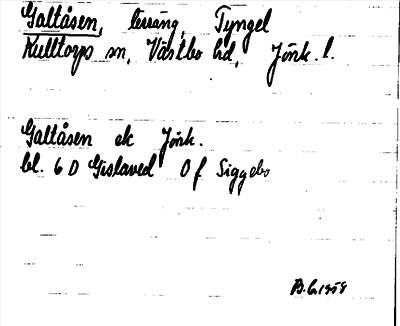 Galtåsen, terräng, Tyngel
Kulltorps sn, Västbo hd, Jönk. l.
Galtåsen ek Jönk.
bl. 6 D Gislaved 0 f Siggebo
B.G. 1959